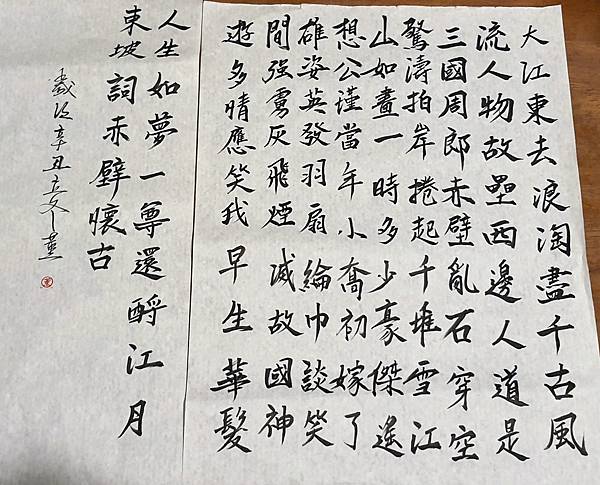 大江東去浪淘盡千古風
流人物故壘西邊人道是
三國周郎赤壁亂石穿空
驚濤拍岸捲起千堆雪江
山如畫一時多少豪傑遙
想公瑾當年小喬初嫁了
雄姿英發羽扇綸巾談笑
間強虜灰飛煙滅故國神
遊多情應笑我早生華髮
人生如夢一尊還酹江月
東坡詞赤壁懷古
歲次辛丑